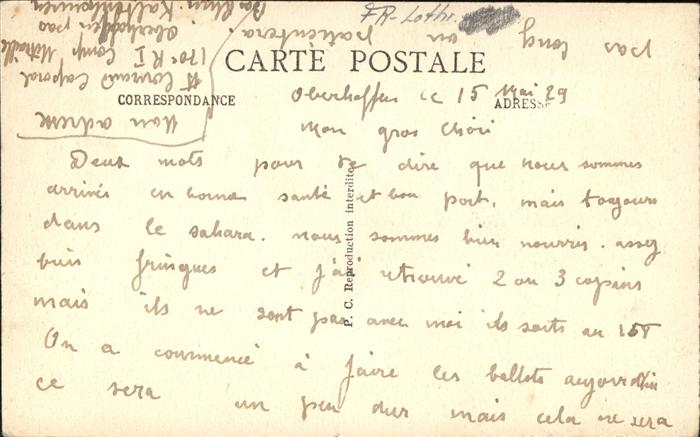 FR-Loth.
CARTE POSTALE
CORRESPONDANCE
ADRESSE
P. C. Reproduction interdite
Oberhoffen ce 15 Mai 29
Mon gros Chéri
Deux mots pour te dire que nous sommes
arrivés en bonne santé et bon port, mais toujours
dans le sahara. nous sommes bien nourris. assez
bien fringues et j'ai retrouvé 2 ou 3 copains
mais ils ne sont pas avec moi ils sont au 158
On a commencé à faire les ballots aujourd'hui
ce sera un peu dur mais cela ne sera
pas long on patientera.
Mon adresse
Caporal
170e R I Comp Mitraille
Oberhoffen par
Bas Rhin. Kaltenhausen